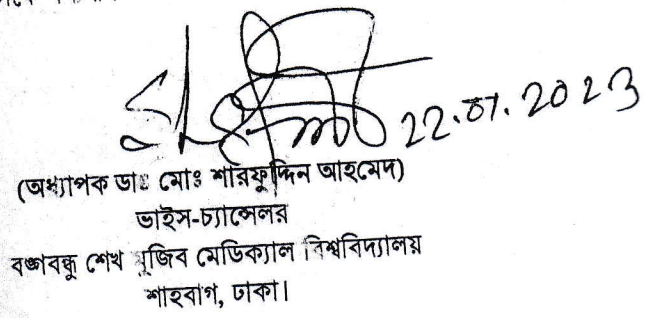 22.01.2023
(অধ্যাপক ডাঃ মোঃ শারফুদ্দিন আহমেদ)
ভাইস-চ্যান্সেলর
বঙ্গবন্ধু শেখ মুজিব মেডিক্যাল বিশ্ববিদ্যালয়
শাহবাগ, ঢাকা।